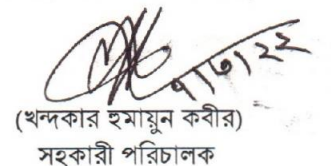 ৭/৩/২২
(খন্দকার হুমায়ুন কবীর)
সহকারী পরিচালক